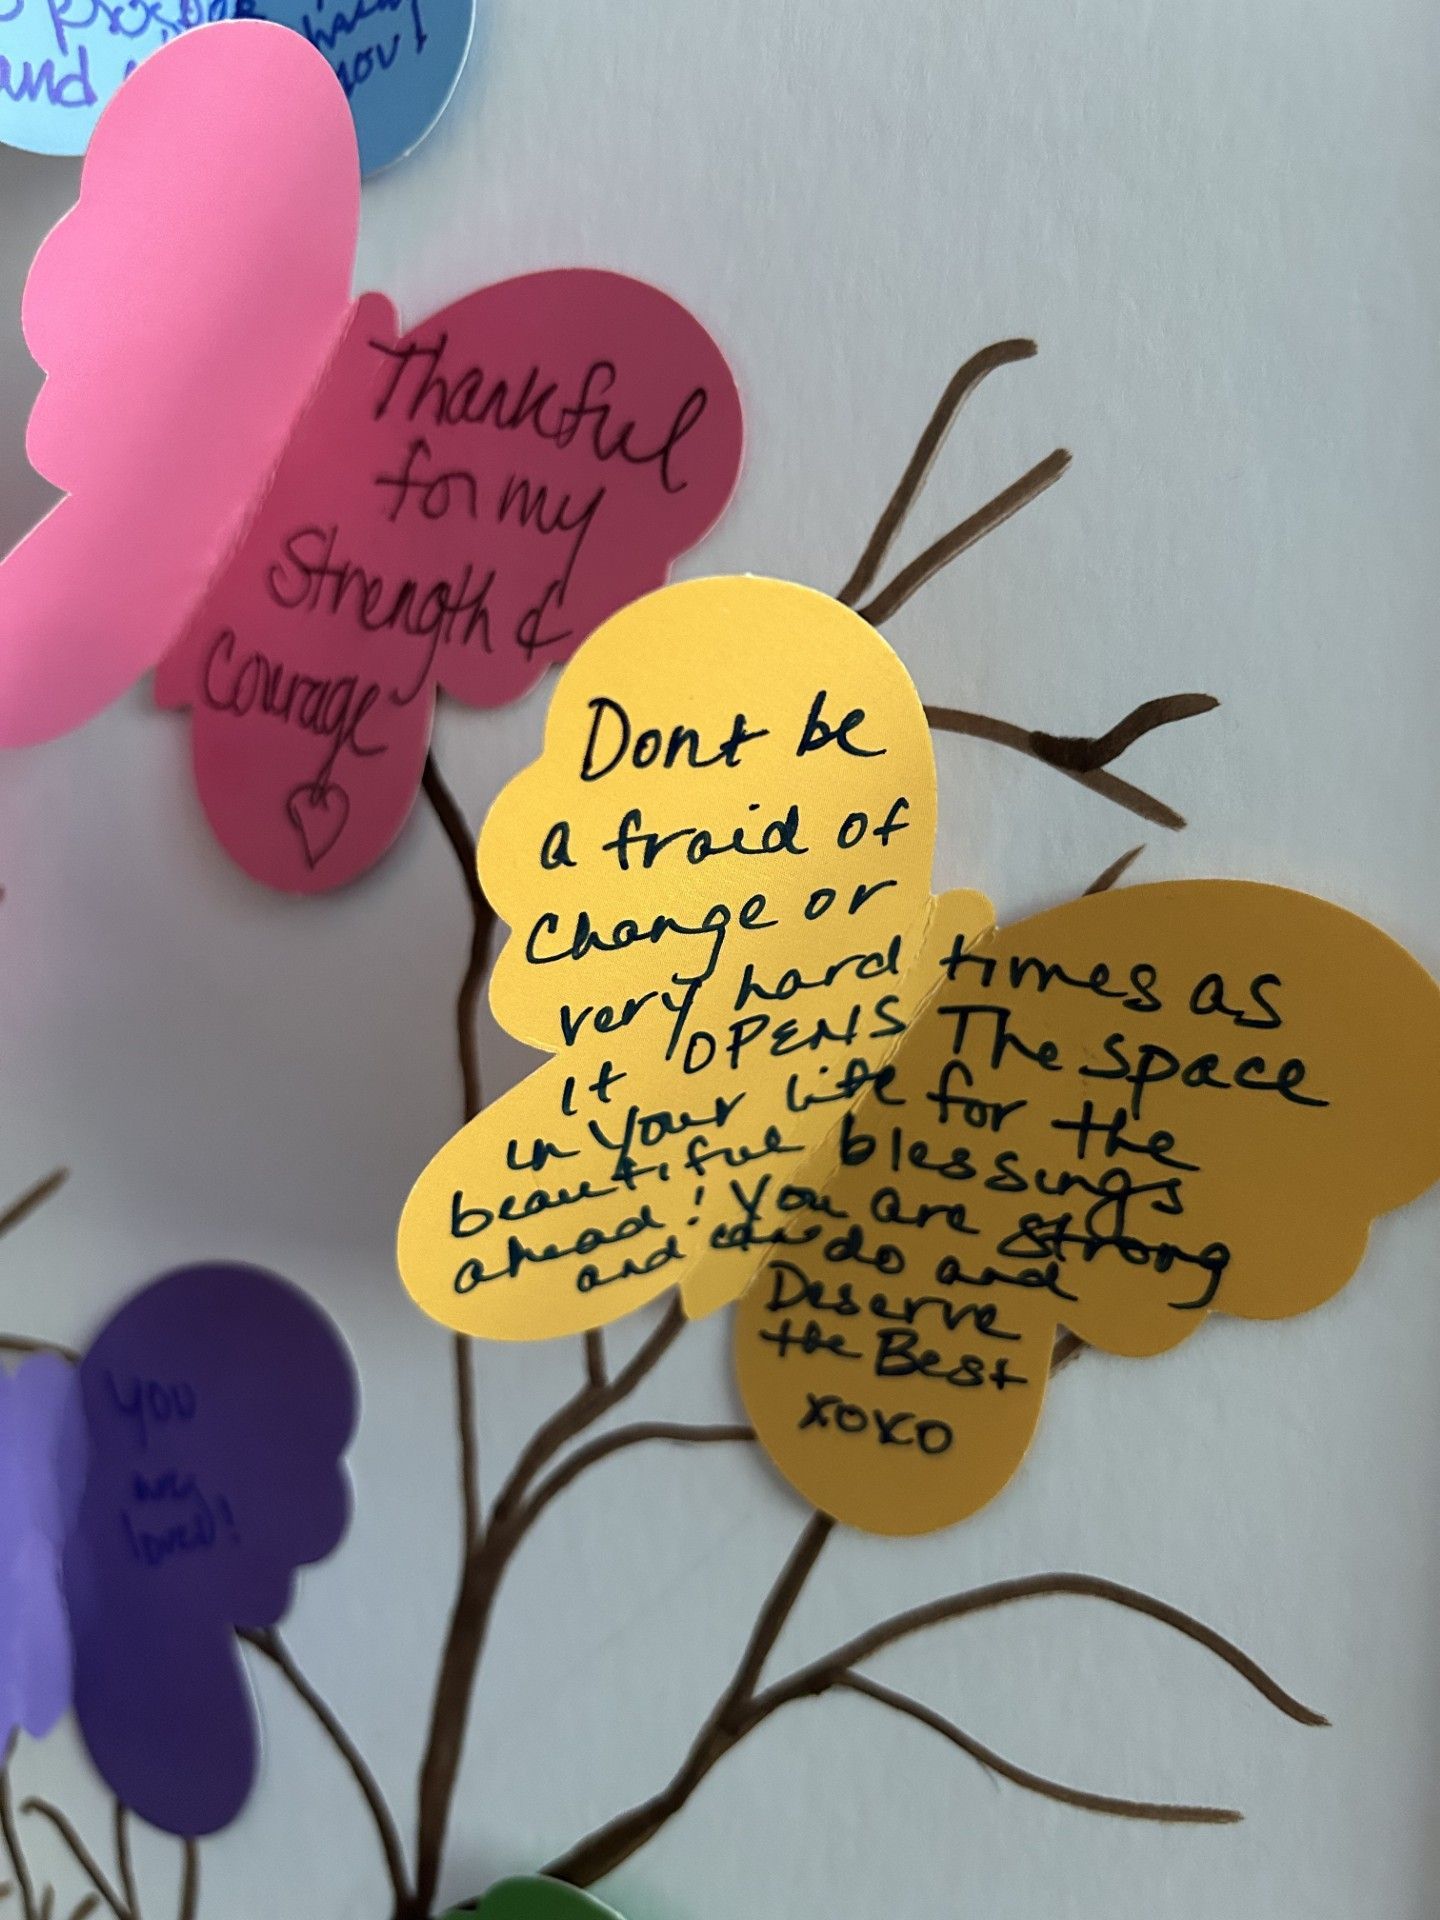 and
you!
Thankful
for my
Strength &
Courage
Dont be
afraid of
Change or
very hard times as
It OPENS The space
in your life for the
beautiful blessings
ahead! You are strong
and can do and
Deserve
the Best
xoxo
you
are
loved!